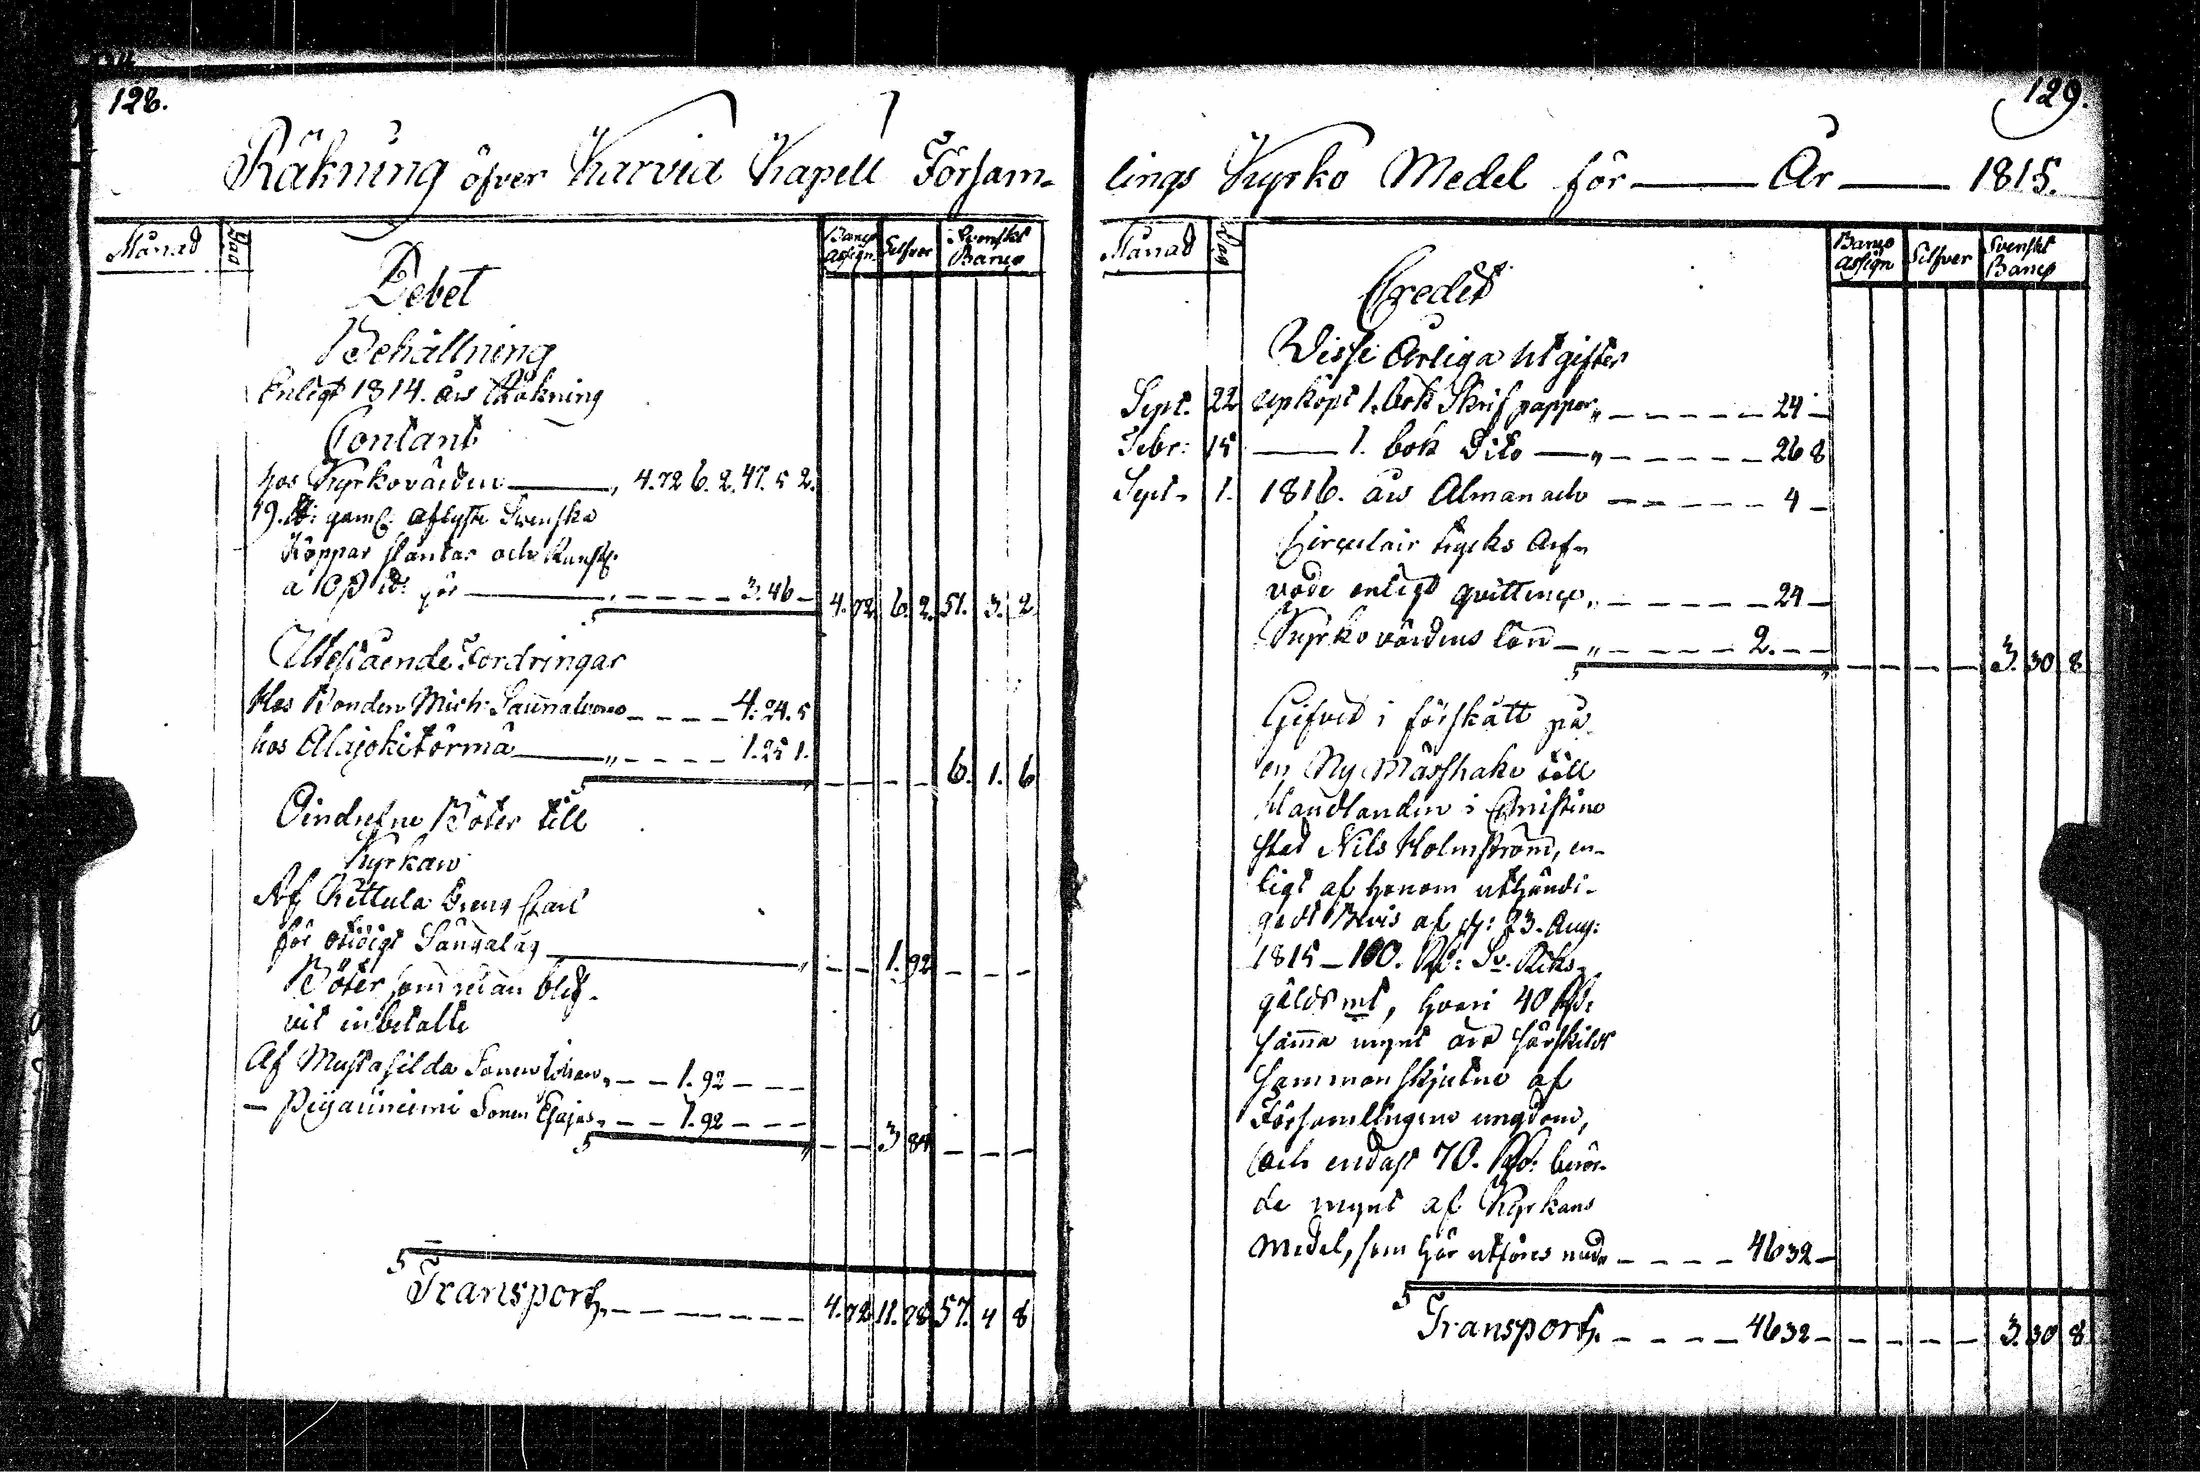 128.
Räkning öfver Karvia Kapell Försam-
Månad Dag Banco Assign. Silfver Svenskt Banco
Debet
Behållning
Enligt 1814. års Räkning
Contant
hos Kyrkovärden 4.72 6.2. 47. 5 2.
19. gaml. aflyste Svenska
Koppar slantar och
a 10 ß gör 3.46 4.72. 6. 2. 51. 3. 2
Utestående Fordringar
Hos Bonden Mich: 4. 24. 5
hos Alajokitörmä 1. 25 1.
6. 1. 6
Oindrefne Böter till
Kyrkan
Af Kettula Dreng Carl
för otidigt Sängalag 1. 92
Böter som redan blif-
vit inbetalte
Af Mustasilda Sonen Johan 1. 92
Sonen Esajas 1. 92
3 84
Transport 4.72 11.78 57. 4 8
129.
lings Kyrko Medel för År 1815.
Månad Dag Banco Assign Silfver Svenskt Banco
Credit
Visse Årliga Utgifter
Sept. 22 upköpt 1. bok Skrif papper 24
Febr: 15 1. bok Dito 26 8
Sept. 1. 1816. års Almanach 4
Circulair tryks Arf-
vode enligt qvittence 24
Kyrkovärdens lön 2.
3. 30 8
Gifvit i förskått på
en Ny Mässhake till
Handlanden i Christine
stad Nils Holmström, en-
ligt af honom uthändi-
gadt Bevis af d: 23. Aug:
1815 100. Rd: Sv. Riks-
gälds mt, hvari 40 Rd:
samma mynt äro särskildt
sammanskjutne af
Församlingens ungdom,
och endast 70. Rd: berör-
de mynt af Kyrkans
Medel, som här utföres med 46 32
Transport 46 32 3. 30 8